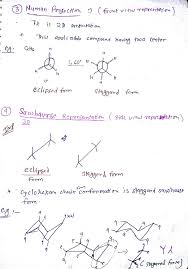 ③ Newman Projection → (front view representation)
→ It is 2D representation
→ This applicable compound having two center
eg:- CH₃
60°
eclipsed form staggered form
④ Sawhorse Representation (side view representation)
eclipsed form staggered form
• Cyclohexan chair conformation is staggered sawhorse form
eg:-
(staggered form)